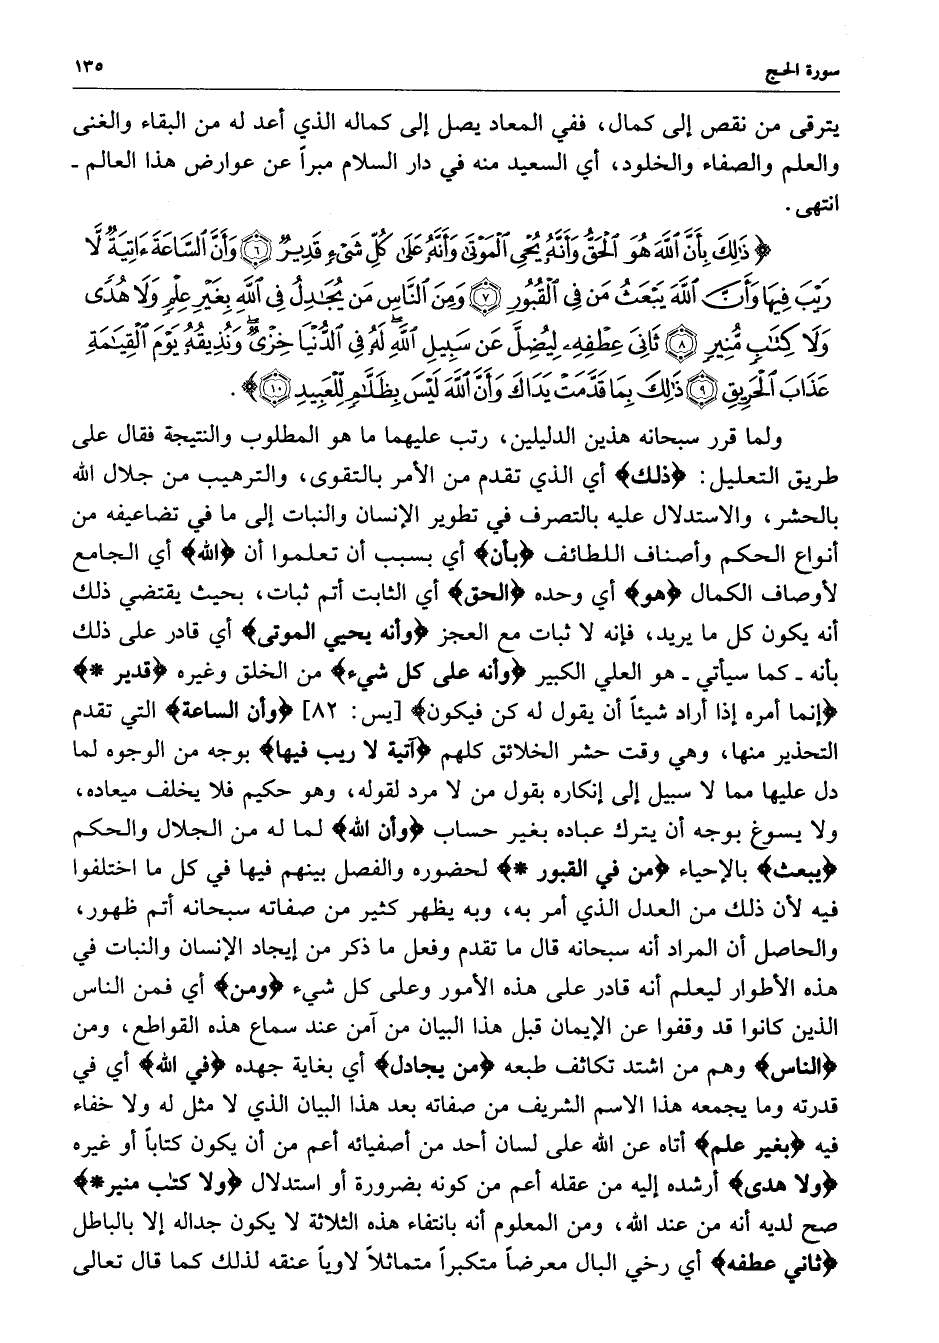 سورة الحج
١٣٥
يترقى من نقص إلى كمال، ففي المعاد يصل إلى كماله الذي أعد له من البقاء والغنى
والعلم والصفاء والخلود، أي السعيد منه في دار السلام مبرأ عن عوارض هذا العالم -
انتهى.
﴿ذَٰلِكَ بِأَنَّ ٱللَّهَ هُوَ ٱلْحَقُّ وَأَنَّهُۥ يُحْىِ ٱلْمَوْتَىٰ وَأَنَّهُۥ عَلَىٰ كُلِّ شَىْءٍ قَدِيرٌ ﴿٦﴾ وَأَنَّ ٱلسَّاعَةَ ءَاتِيَةٌ لَّا
رَيْبَ فِيهَا وَأَنَّ ٱللَّهَ يَبْعَثُ مَن فِى ٱلْقُبُورِ ﴿٧﴾ وَمِنَ ٱلنَّاسِ مَن يُجَٰدِلُ فِى ٱللَّهِ بِغَيْرِ عِلْمٍ وَلَا هُدًى
وَلَا كِتَٰبٍ مُّنِيرٍ ﴿٨﴾ ثَانِىَ عِطْفِهِۦ لِيُضِلَّ عَن سَبِيلِ ٱللَّهِ ۖ لَهُۥ فِى ٱلدُّنْيَا خِزْىٌ ۖ وَنُذِيقُهُۥ يَوْمَ ٱلْقِيَٰمَةِ
عَذَابَ ٱلْحَرِيقِ ﴿٩﴾ ذَٰلِكَ بِمَا قَدَّمَتْ يَدَاكَ وَأَنَّ ٱللَّهَ لَيْسَ بِظَلَّٰمٍ لِّلْعَبِيدِ ﴿١٠﴾﴾.
ولما قرر سبحانه هذين الدليلين، رتب عليهما ما هو المطلوب والنتيجة فقال على
طريق التعليل: ﴿ذلك﴾ أي الذي تقدم من الأمر بالتقوى، والترهيب من جلال الله
بالحشر، والاستدلال عليه بالتصرف في تطوير الإنسان والنبات إلى ما في تضاعيفه من
أنواع الحكم وأصناف اللطائف ﴿بأن﴾ أي بسبب أن تعلموا أن ﴿الله﴾ أي الجامع
لأوصاف الكمال ﴿هو﴾ أي وحده ﴿الحق﴾ أي الثابت أتم ثبات، بحيث يقتضي ذلك
أنه يكون كل ما يريد، فإنه لا ثبات مع العجز ﴿وأنه يحيي الموتى﴾ أي قادر على ذلك
بأنه - كما سيأتي - هو العلي الكبير ﴿وأنه على كل شيء﴾ من الخلق وغيره ﴿قدير *﴾
﴿إنما أمره إذا أراد شيئاً أن يقول له كن فيكون﴾ [يس: ٨٢] ﴿وأن الساعة﴾ التي تقدم
التحذير منها، وهي وقت حشر الخلائق كلهم ﴿آتية لا ريب فيها﴾ بوجه من الوجوه لما
دل عليها مما لا سبيل إلى إنكاره بقول من لا مرد لقوله، وهو حكيم فلا يخلف ميعاده،
ولا يسوغ بوجه أن يترك عباده بغير حساب ﴿وأن الله﴾ لما له من الجلال والحكم
﴿يبعث﴾ بالإحياء ﴿من في القبور *﴾ لحضوره والفصل بينهم فيها في كل ما اختلفوا
فيه لأن ذلك من العدل الذي أمر به، وبه يظهر كثير من صفاته سبحانه أتم ظهور،
والحاصل أن المراد أنه سبحانه قال ما تقدم وفعل ما ذكر من إيجاد الإنسان والنبات في
هذه الأطوار ليعلم أنه قادر على هذه الأمور وعلى كل شيء ﴿ومن﴾ أي فمن الناس
الذين كانوا قد وقفوا عن الإيمان قبل هذا البيان من آمن عند سماع هذه القواطع، ومن
﴿الناس﴾ وهم من اشتد تكاثف طبعه ﴿من يجادل﴾ أي بغاية جهده ﴿في الله﴾ أي في
قدرته وما يجمعه هذا الاسم الشريف من صفاته بعد هذا البيان الذي لا مثل له ولا خفاء
فيه ﴿بغير علم﴾ أتاه عن الله على لسان أحد من أصفيائه أعم من أن يكون كتاباً أو غيره
﴿ولا هدى﴾ أرشده إليه من عقله أعم من كونه بضرورة أو استدلال ﴿ولا كتٰب منير*﴾
صح لديه أنه من عند الله، ومن المعلوم أنه بانتفاء هذه الثلاثة لا يكون جداله إلا بالباطل
﴿ثاني عطفه﴾ أي رخي البال معرضاً متكبراً متمائلاً لاوياً عنقه لذلك كما قال تعالى